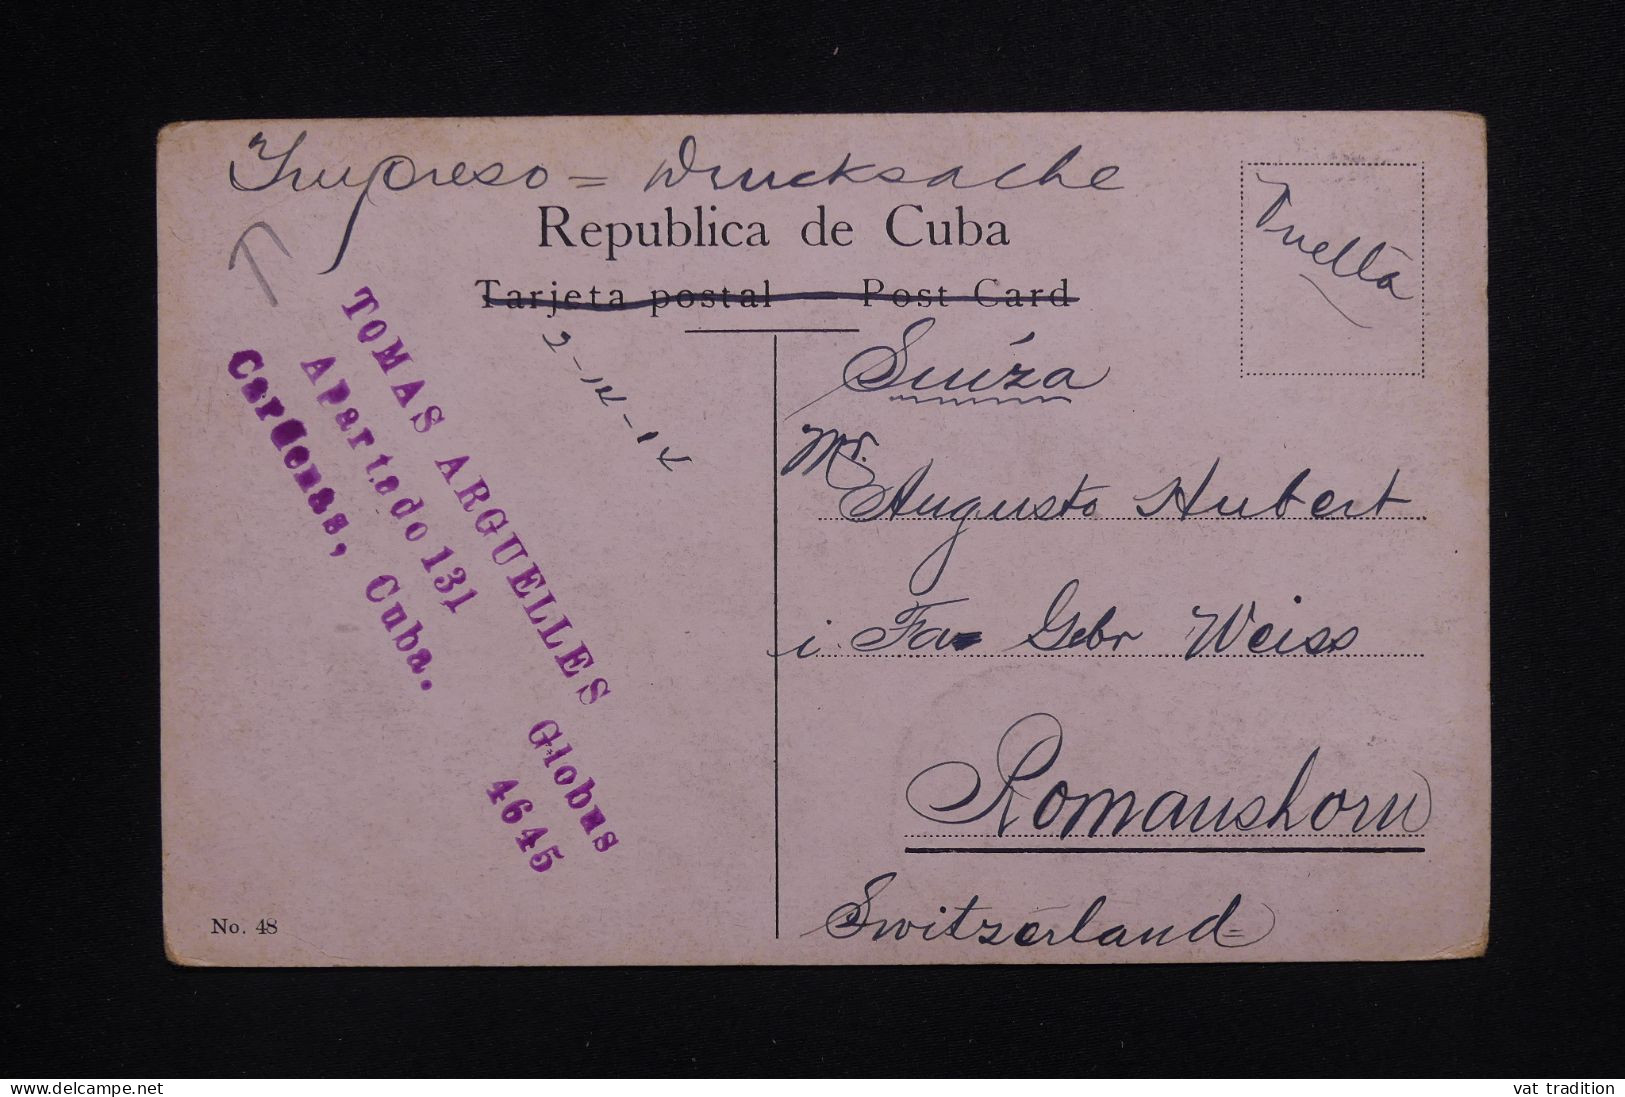 Impreso = Drucksache
Republica de Cuba
Tarjeta postal Post Card
Suiza
Mr.
Augusto Hubert
i. Fa Gebr Weiss
Romanshorn
Switzerland
TOMAS ARGUELLES Globus
Apartado 131 4645
Cardenas, Cuba.
No. 48
vat tradition